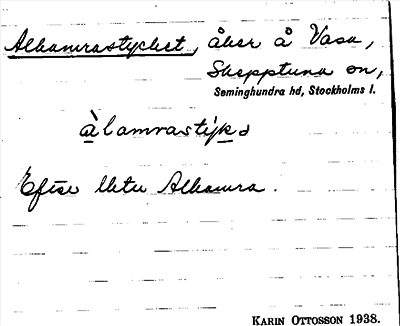 Alhamrastycket, åker å Vasa,
Skepptuna sn,
Seminghundra hd, Stockholms l.
àlamrastyk
Efter Alhamra.
KARIN OTTOSSON 1938.